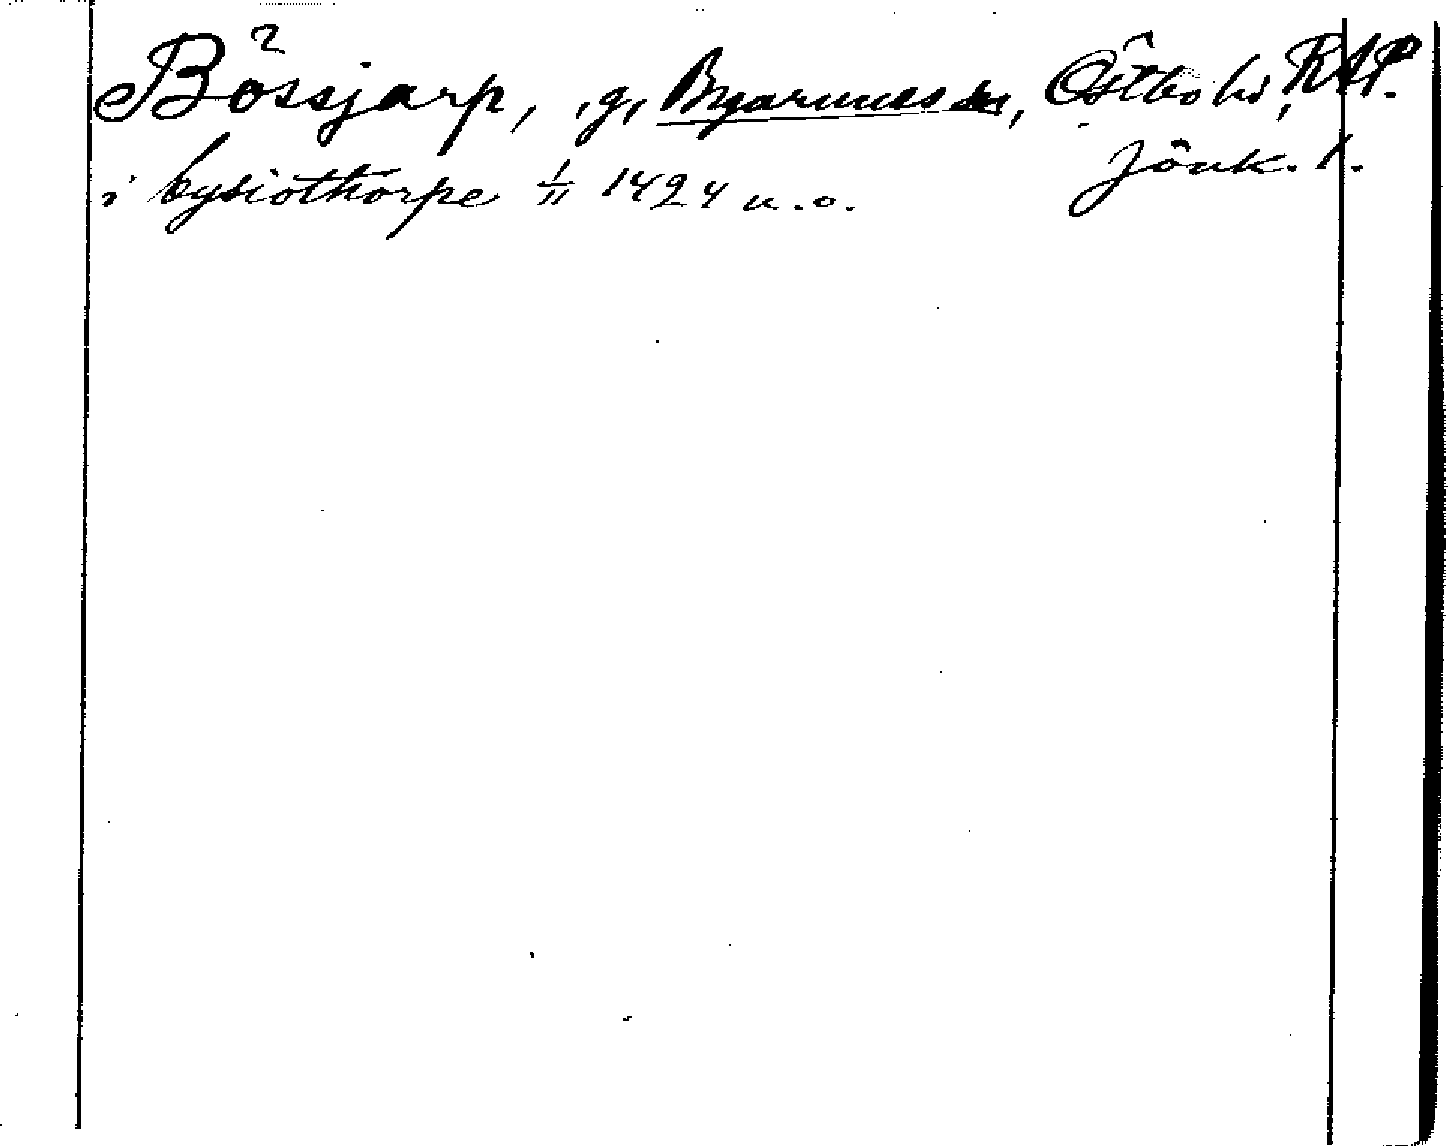 Bössjarp, g, Byarums sn, Östbo hd, RAP.
Jönk. l.
i bysiothorpe 1/11 1424 u.o.